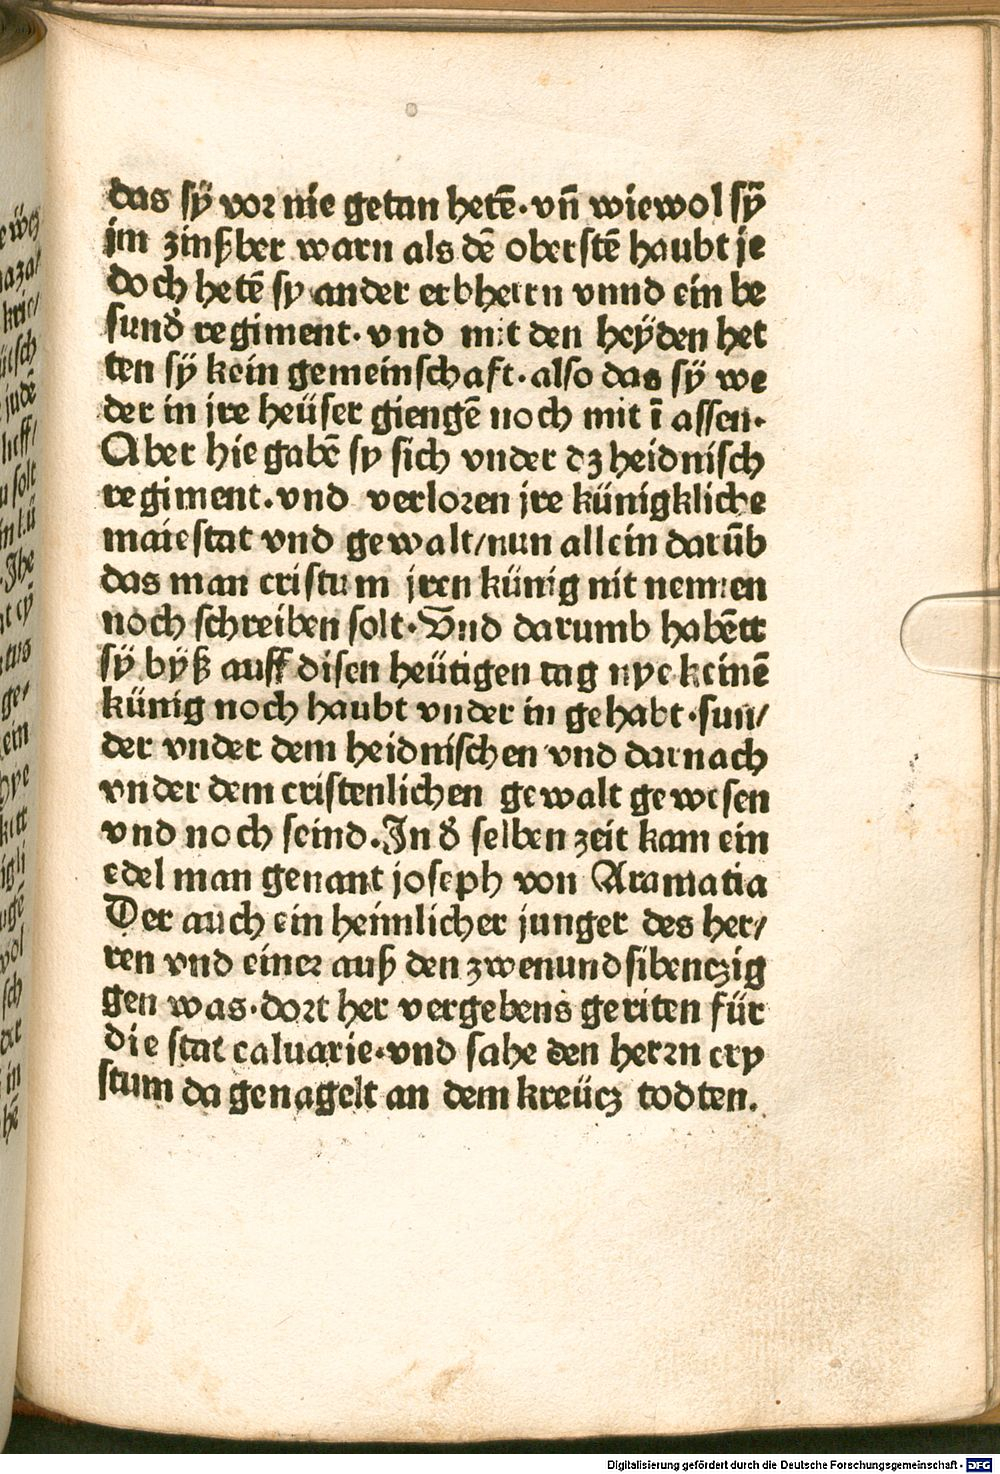 das sÿ vor nie getan hetē·vn̄ wiewol sÿ
jm zinßber warn als dē oberstē haubt je
doch hetē sy ander erbherrn vnnd ein be
sund̓ regiment·vnd mit den heÿden het
ten sÿ kein gemeinschaft·also das sÿ we
der in jre heüser giengē noch mit ī assen·
Aber hie gabē sy sich vnder dz heidnisch
regiment·vnd verloren jre künigkliche
maiestat vnd gewalt/nun allein darūb
das man cristum jren künig nit nennen
noch schreiben solt·Vnd darumb habētt
sÿ byß auff disen heütigen tag nye keinē
künig noch haubt vnder in gehabt·sun/
der vnder dem heidnischen vnd darnach
vnder dem cristenlichen gewalt gewesen
vnd noch seind.In d̓ selben zeit kam ein
edel man genant joseph von Aramatia
Der auch ein heimlicher junger des her/
ren vnd einer auß den zwenundsibenczig
gen was·dort her vergebens geriten für
die stat caluarie·vnd sahe den herrn cry
stum da genagelt an dem kreücz todten.
Digitalisierung gefördert durch die Deutsche Forschungsgemeinschaft - DFG